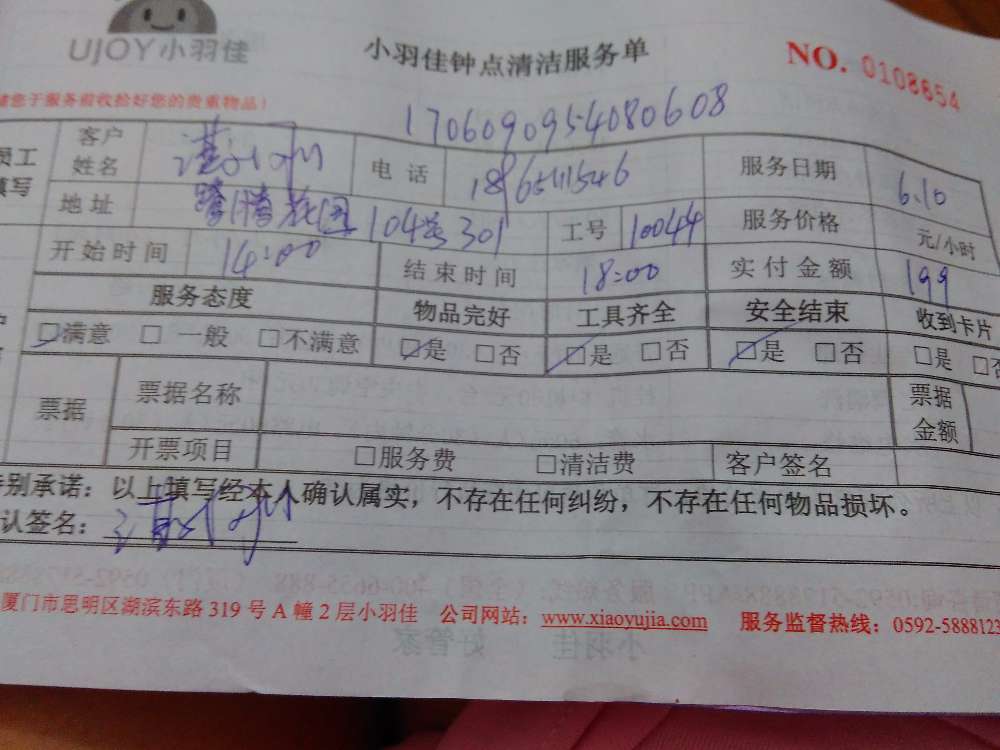 UJOY小羽佳
小羽佳钟点清洁服务单
NO. 0108654
您于服务前收拾好您的贵重物品！
1706090954080608
员工填写
客户姓名
电话 18965111546
服务日期 6.10
地址 花园104 301
工号 10044
服务价格 元/小时
开始时间 14:00
结束时间 18:00
实付金额 199
服务态度 物品完好 工具齐全 安全结束 收到卡片
☑满意 □一般 □不满意 ☑是 □否 ☑是 □否 ☑是 □否 □是 □否
票据 票据名称 票据金额
开票项目 □服务费 □清洁费 客户签名
特别承诺：以上填写经本人确认属实，不存在任何纠纷，不存在任何物品损坏。
认签名：
厦门市思明区湖滨东路 319 号 A 幢 2 层小羽佳 公司网站：www.xiaoyujia.com 服务监督热线：0592-5888123
小羽佳 好管家